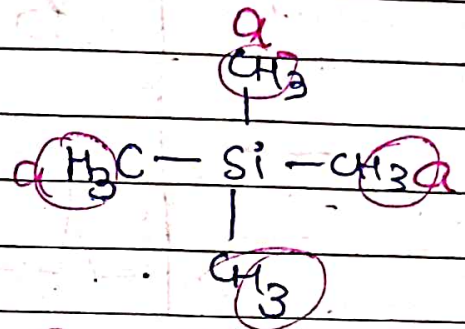 a
CH3
a H3C — Si — CH3 a
CH3